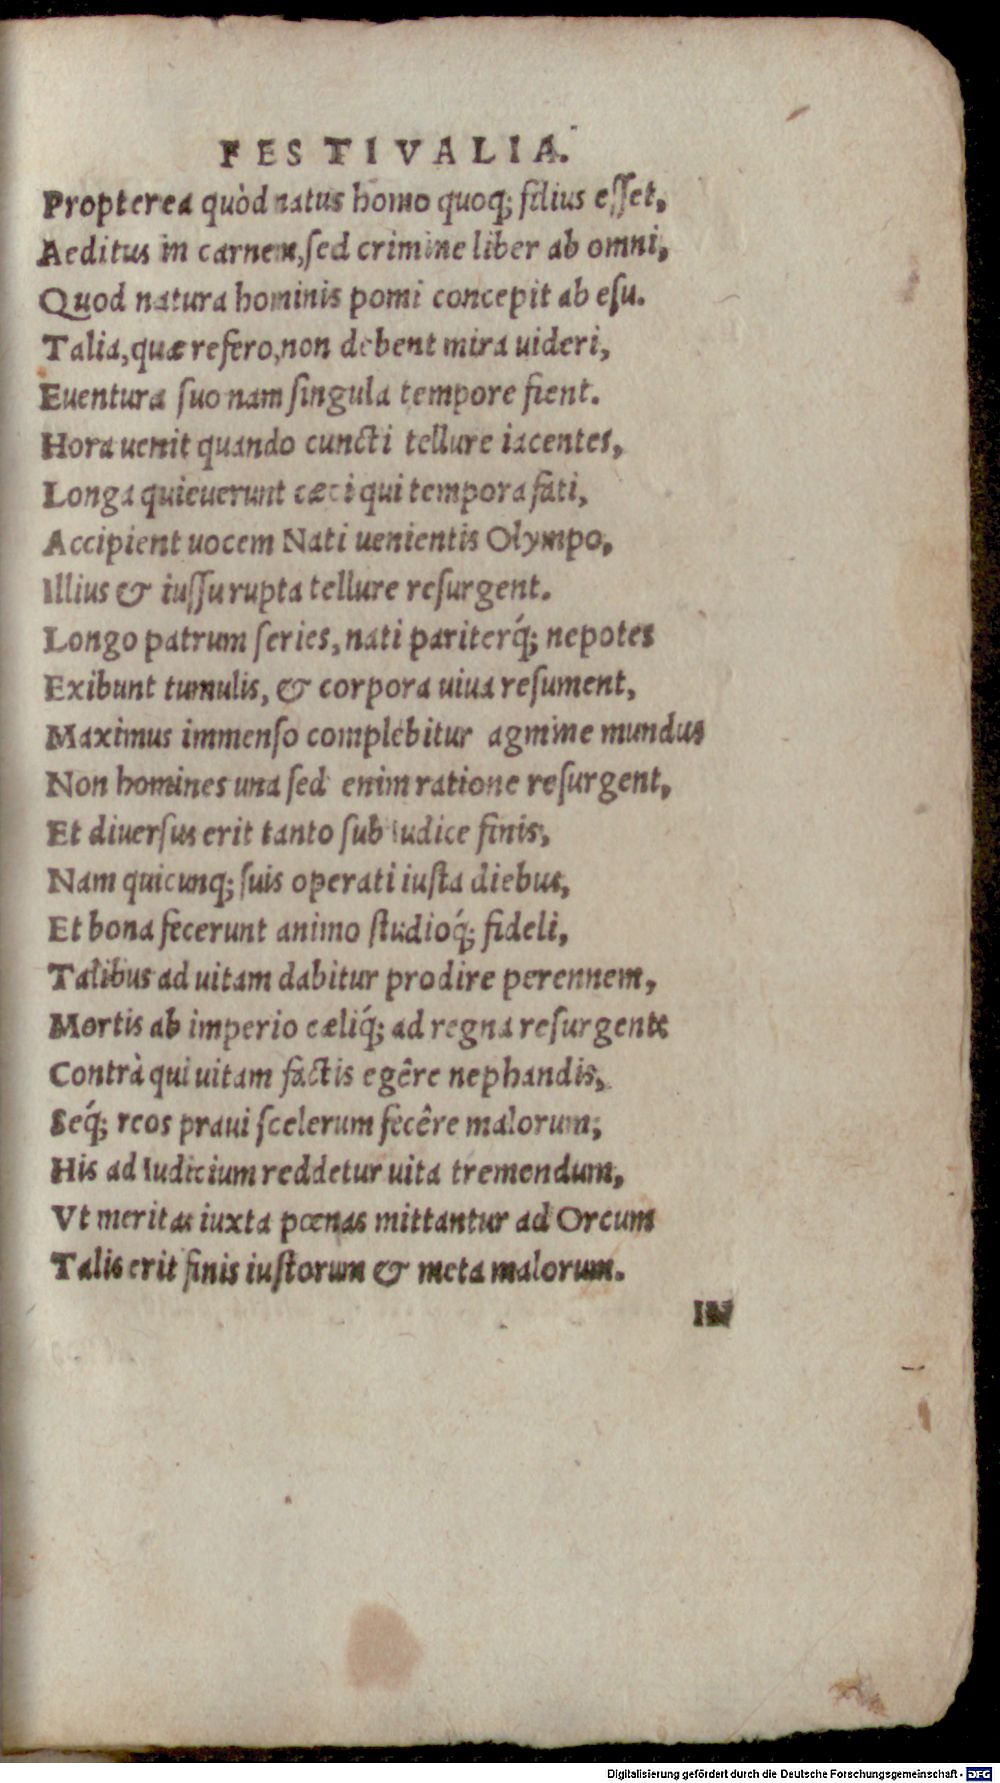 FESTIVALIA.
Propterea quòd natus homo quoq; filius eſſet,
Aeditus in carnem, ſed crimine liber ab omni,
Quod natura hominis pomi concepit ab eſu.
Talia, quæ refero, non debent mira uideri,
Euentura ſuo nam ſingula tempore fient.
Hora uenit quando cuncti tellure iacentes,
Longa quieuerunt cæci qui tempora fati,
Accipient uocem Nati uenientis Olympo,
Illius & iuſſu rupta tellure reſurgent.
Longo patrum ſeries, nati pariterq́; nepotes
Exibunt tumulis, & corpora uiua reſument,
Maximus immenſo complebitur agmine mundus
Non homines una ſed enim ratione reſurgent,
Et diuerſus erit tanto ſub Iudice finis,
Nam quicunq; ſuis operati iuſta diebus,
Et bona fecerunt animo ſtudioq́; fideli,
Talibus ad uitam dabitur prodire perennem,
Mortis ab imperio cæliq́; ad regna reſurgent:
Contrà qui uitam factis egêre nephandis,
Seq́; reos praui ſcelerum fecêre malorum,
His ad Iudicium reddetur uita tremendum,
Vt meritas iuxta pœnas mittantur ad Orcum
Talis erit finis iuſtorum & meta malorum.
IN
Digitalisierung gefördert durch die Deutsche Forschungsgemeinschaft - DFG